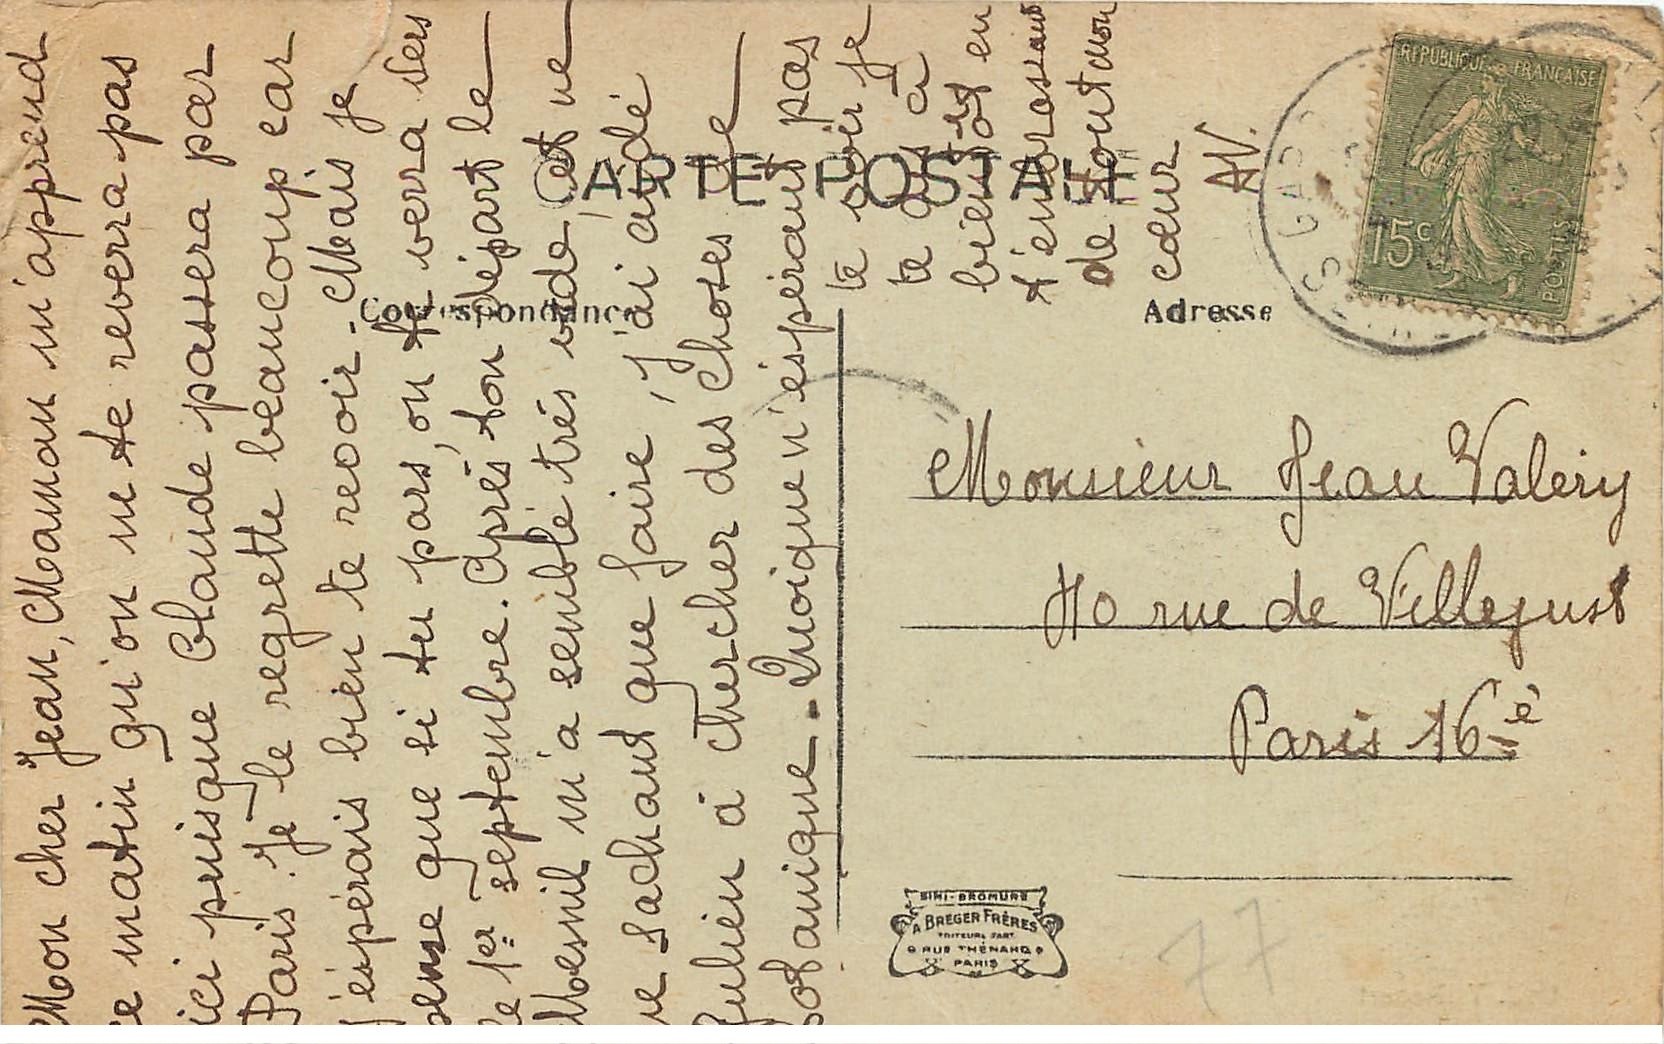 Mon cher Jean, Maman m'apprend
ce matin qu'on ne te reverra pas
ici puisque Claude passera par
Paris. Je le regrette beaucoup car
j'espérais bien te revoir. Mais je
pense que si tu pars, on te verra vers
le 1er septembre. Après ton départ le
Mesnil m'a semblé très vide, et ne
ne sachant que faire, j'ai aidé
Julien à chercher des choses de
botanique. Quoique n'espérant pas
te voir je
te dis à
bientôt en
t'embrassant
de tout mon
cœur
AV.
CARTE POSTALE
Correspondance
Adresse
REPUBLIQUE FRANÇAISE
15c
POSTES
Monsieur Jean Valéry
40 rue de Villejust
Paris 16e
SIMI-BROMURE
A BREGER FRÈRES
9 RUE THÉNARD 9
PARIS
77